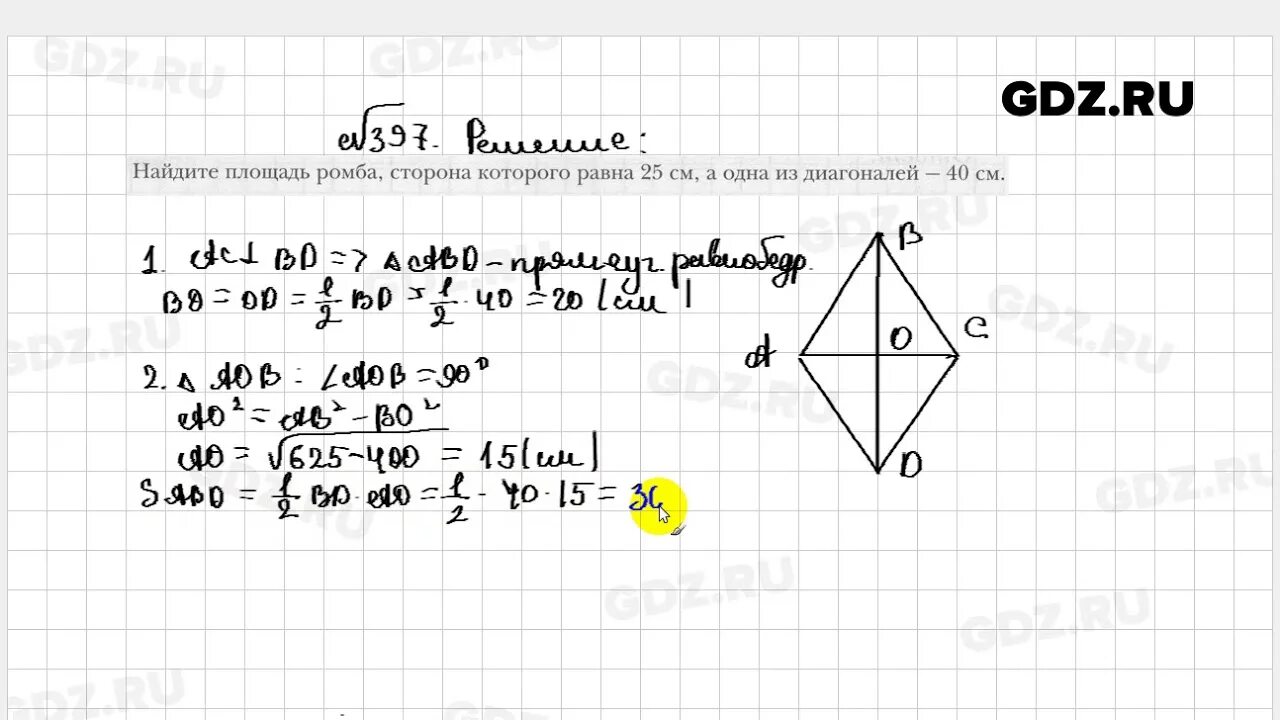 GDZ.RU
№397. Решение:
Найдите площадь ромба, сторона которого равна 25 см, а одна из диагоналей — 40 см.
1. AC⊥BD => △ABD – прямоуг. равнобедр.
BO = OD = 1/2 BD = 1/2 · 40 = 20 (см)
2. △ AOB : ∠AOB = 90°
AO² = AB² – BO²
AO = √625–400 = 15 (см)
S ABD = 1/2 BD · AO = 1/2 · 40 · 15 = 30
B
A
O
C
D
GDZ.RU
GDZ.RU
GDZ.RU
GDZ.RU
GDZ.RU
GDZ.RU
GDZ.RU
GDZ.RU
GDZ.RU
GDZ.RU
GDZ.RU